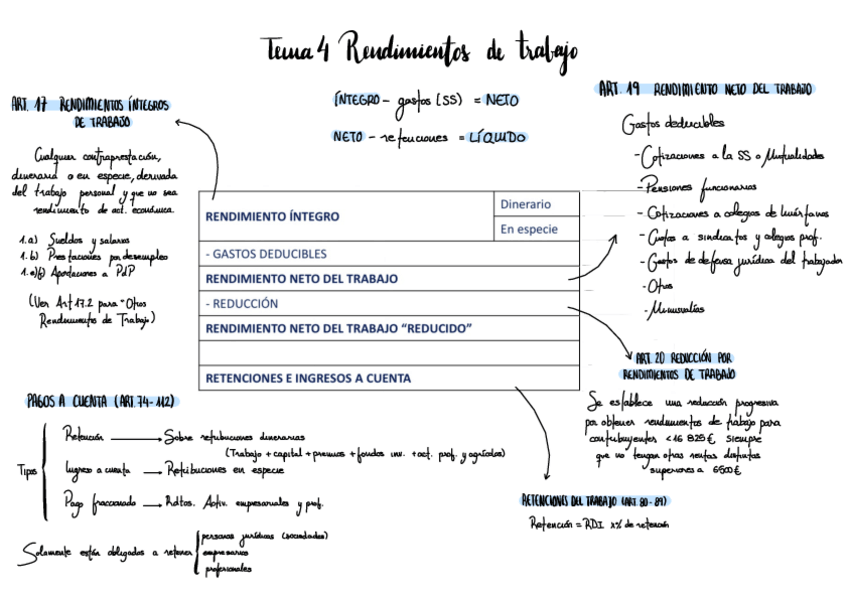 Tema 4 Rendimientos de trabajo
ÍNTEGRO - gastos (SS) = NETO
NETO - retenciones = LÍQUIDO
ART. 17 RENDIMIENTOS ÍNTEGROS
DE TRABAJO
Cualquier contraprestación,
dineraria o en especie, derivada
del trabajo personal y que no sea
rendimiento de act. económica.
1.a) Sueldos y salarios
1.b) Prestaciones por desempleo
1.e)f) Aportaciones a PdP
(Ver Art 17.2 para "Otros
Rendimientos de Trabajo)
RENDIMIENTO ÍNTEGRO
Dinerario
En especie
- GASTOS DEDUCIBLES
RENDIMIENTO NETO DEL TRABAJO
- REDUCCIÓN
RENDIMIENTO NETO DEL TRABAJO “REDUCIDO”
RETENCIONES E INGRESOS A CUENTA
ART. 19 RENDIMIENTO NETO DEL TRABAJO
Gastos deducibles
- Cotizaciones a la SS o Mutualidades
- Pensiones funcionarios
- Cotizaciones a colegios de huérfanos
- Cuotas a sindicatos y colegios prof.
- Gastos de defensa jurídica del trabajador
- Otros
- Minusvalías
ART. 20 REDUCCIÓN POR
RENDIMIENTOS DE TRABAJO
Se establece una reducción progresiva
por obtener rendimientos de trabajo para
contribuyentes <16 825€, siempre
que no tengan otras rentas distintas
superiores a 6500€
PAGOS A CUENTA (ART. 74-112)
Tipos
Retención → Sobre retribuciones dinerarias
(Trabajo + capital + premios + fondos inv. + act. prof. y agrícolas)
Ingreso a cuenta → Retribuciones en especie
Pago fraccionado → Rdtos. Activ. empresariales y prof.
Solamente están obligados a retener
personas jurídicas (sociedades)
empresarios
profesionales
RETENCIONES DEL TRABAJO (ART. 80-89)
Retención = RDI x % de retención